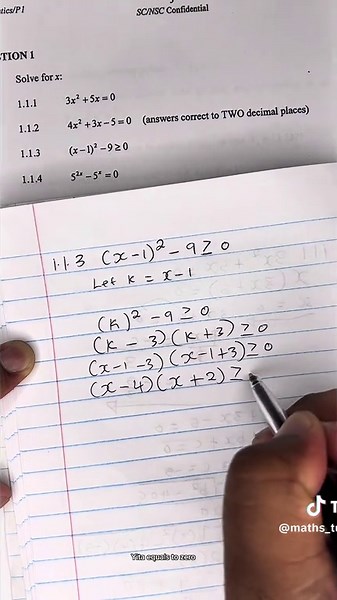 tics/P1
SC/NSC Confidential
STION 1
Solve for x:
1.1.1 3x² + 5x = 0
1.1.2 4x² + 3x – 5 = 0 (answers correct to TWO decimal places)
1.1.3 (x – 1)² – 9 ≥ 0
1.1.4 5²ˣ – 5ˣ = 0
1.1.3 (x – 1)² – 9 ≥ 0
Let k = x – 1
(k)² – 9 ≥ 0
(k – 3)(k + 3) ≥ 0
(x – 1 – 3)(x – 1 + 3) ≥ 0
(x – 4)(x + 2) ≥
@maths_tu
Yita equals to zero